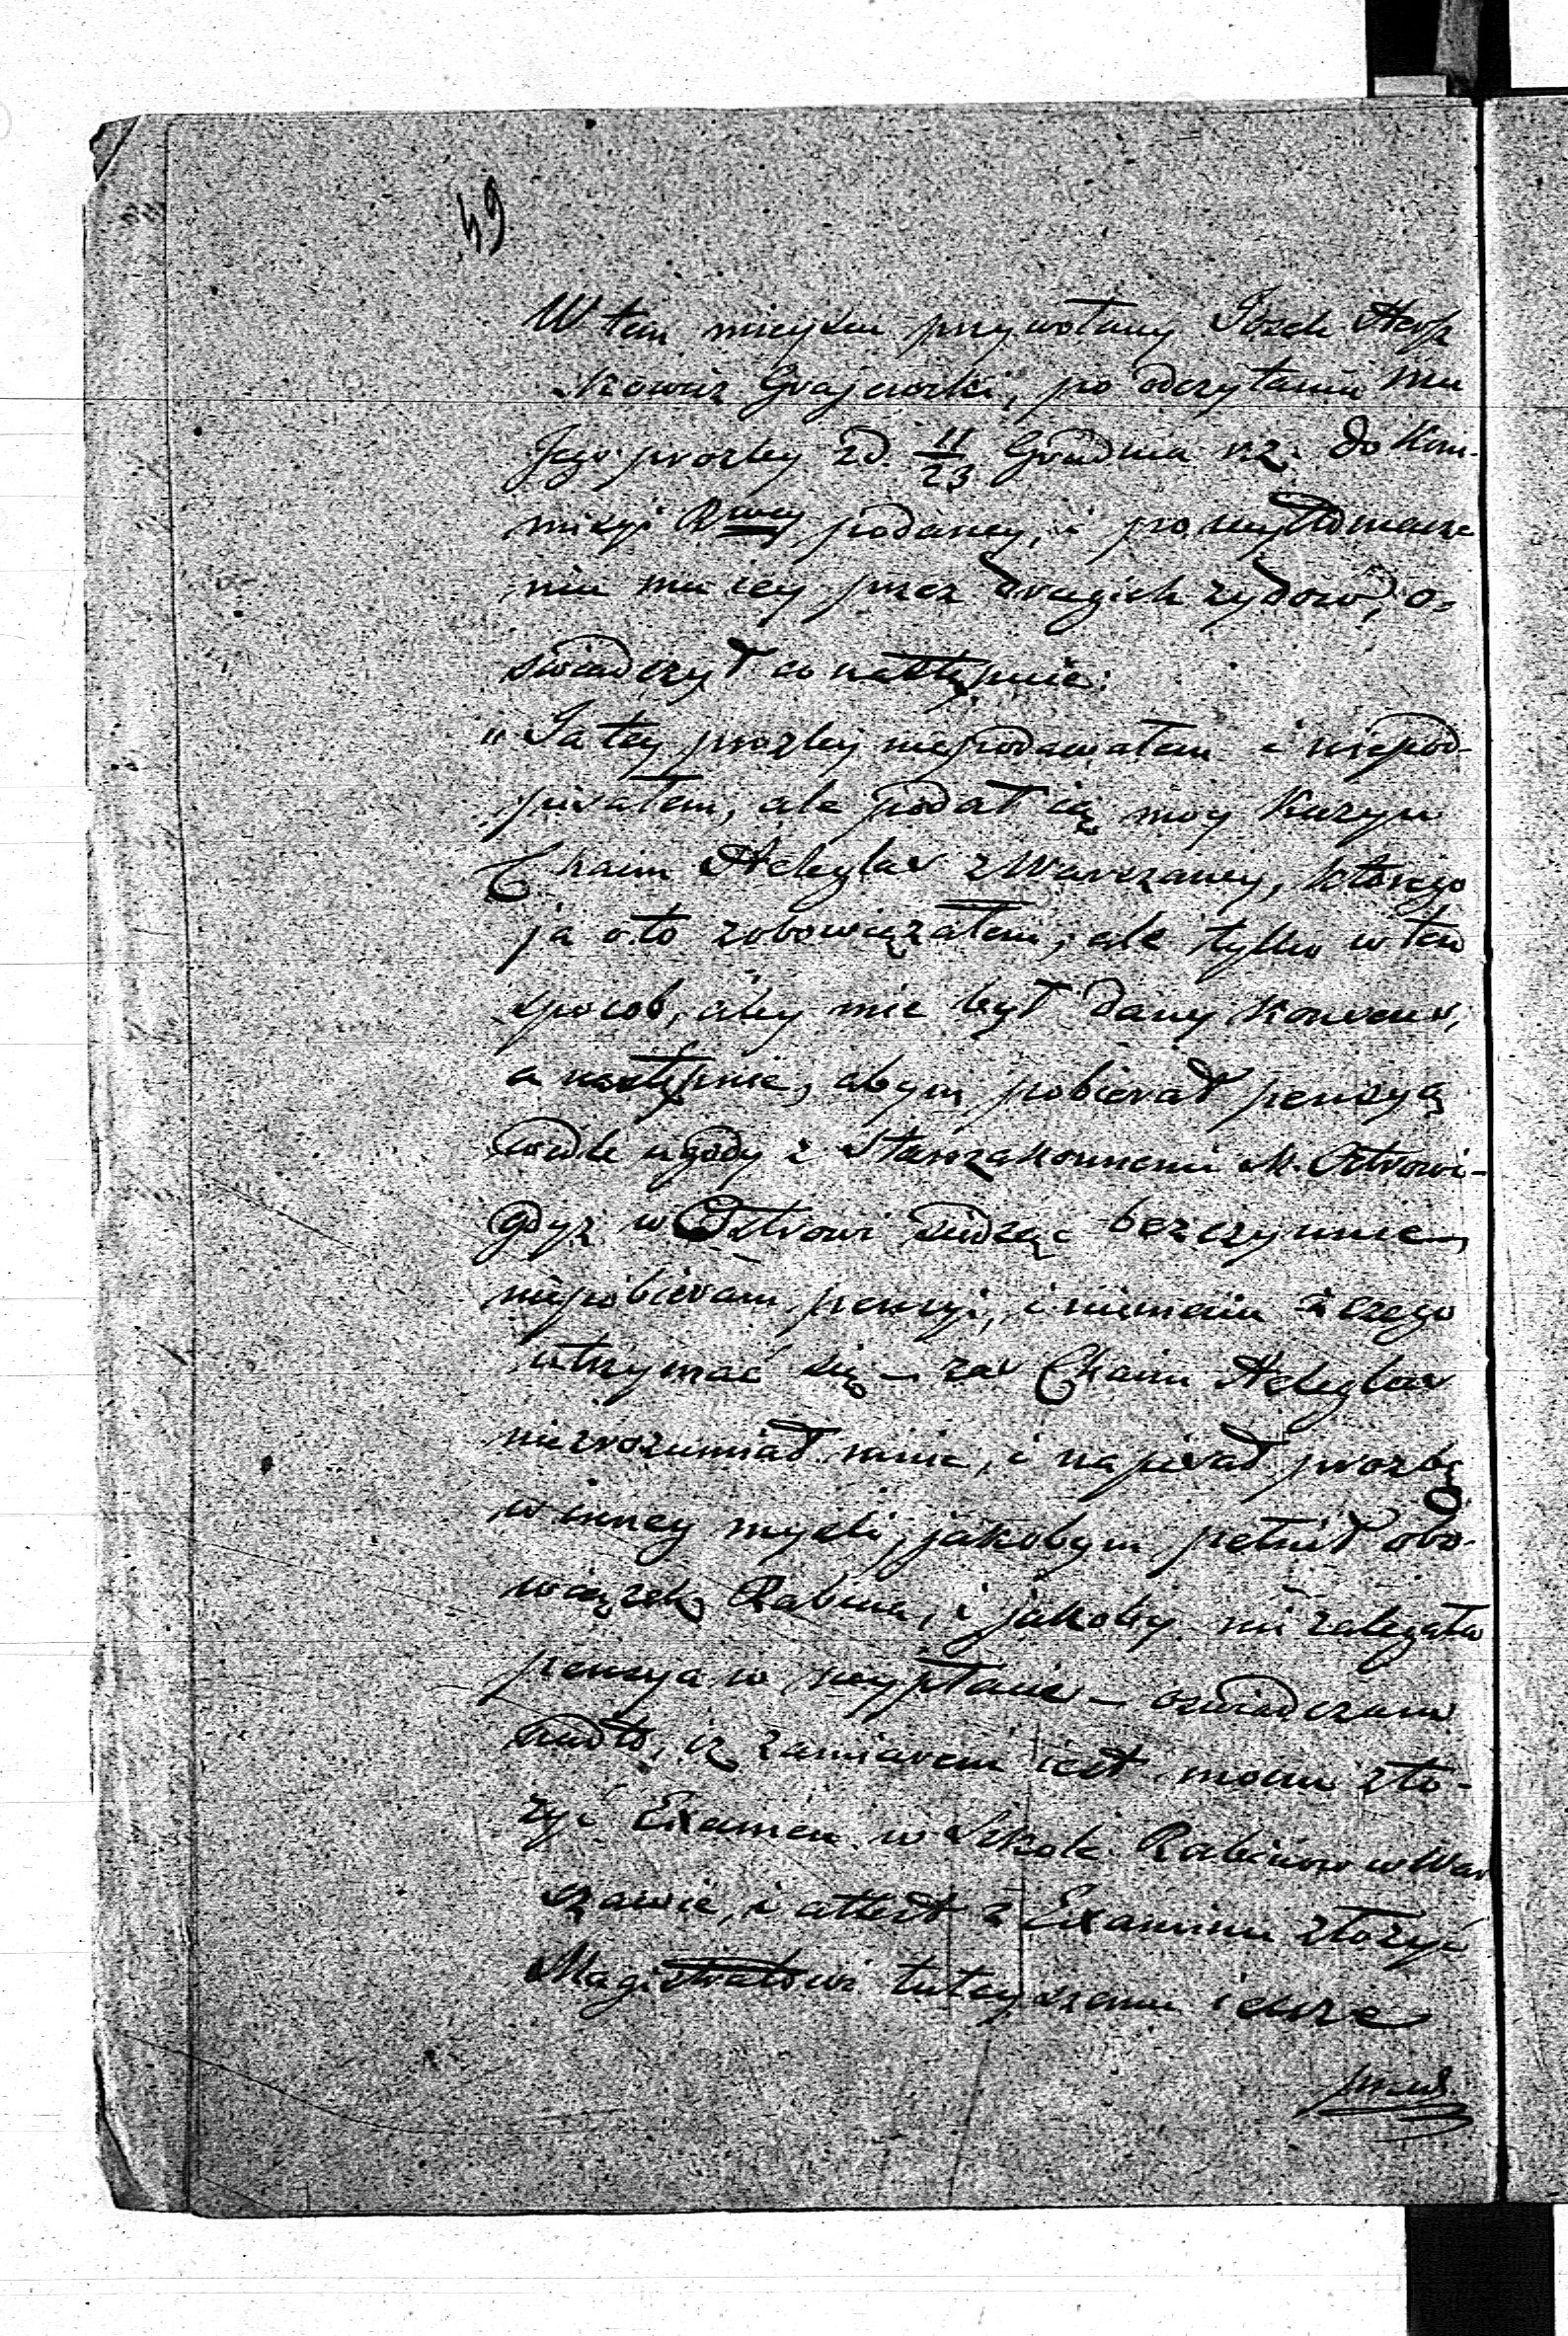 49
W tem mieyscu przywołany Josek Hersz
kowicz Grajewski, po odczytaniu mu
Jego prozby z d. 11/23 Grudnia r.z. do Kom-
misyi Rwey podaney, i po wytłomacze
niu mu iey przez drugich zydow, o-
swiadczył co następuie:
"Ja tey prozby niepodawałem i niepod-
pisałem, ale podał ią moy Kuzyn
Chaim z Warszawy, ktorego
ja oto zobowiązałem, ale tylko w ten
sposob, aby mie był dany Konsens,
a następnie, abym pobierał pensyą
wedle ugody z Starozakonnemi M. Ostrowi-
gdyz w Ostrowi siedząc bezczynnie
niepobieram pensyi, i niemam z czego
utrzymać się – zas Chaim
niezrozumiał mnie, i napisał prozbę
w inney mysli, jakobym pełnił obo-
wiązek Rabina, i jakoby mi zalegała
pensya w wypłacie – oswiadczam
nadto, iz zamiarem iest moim zło-
zyć Examen w Szkole Rabinow w War
szawie, i attest z Examinu złozyć
Magistratowi tuteyszemu ieszcze
przed